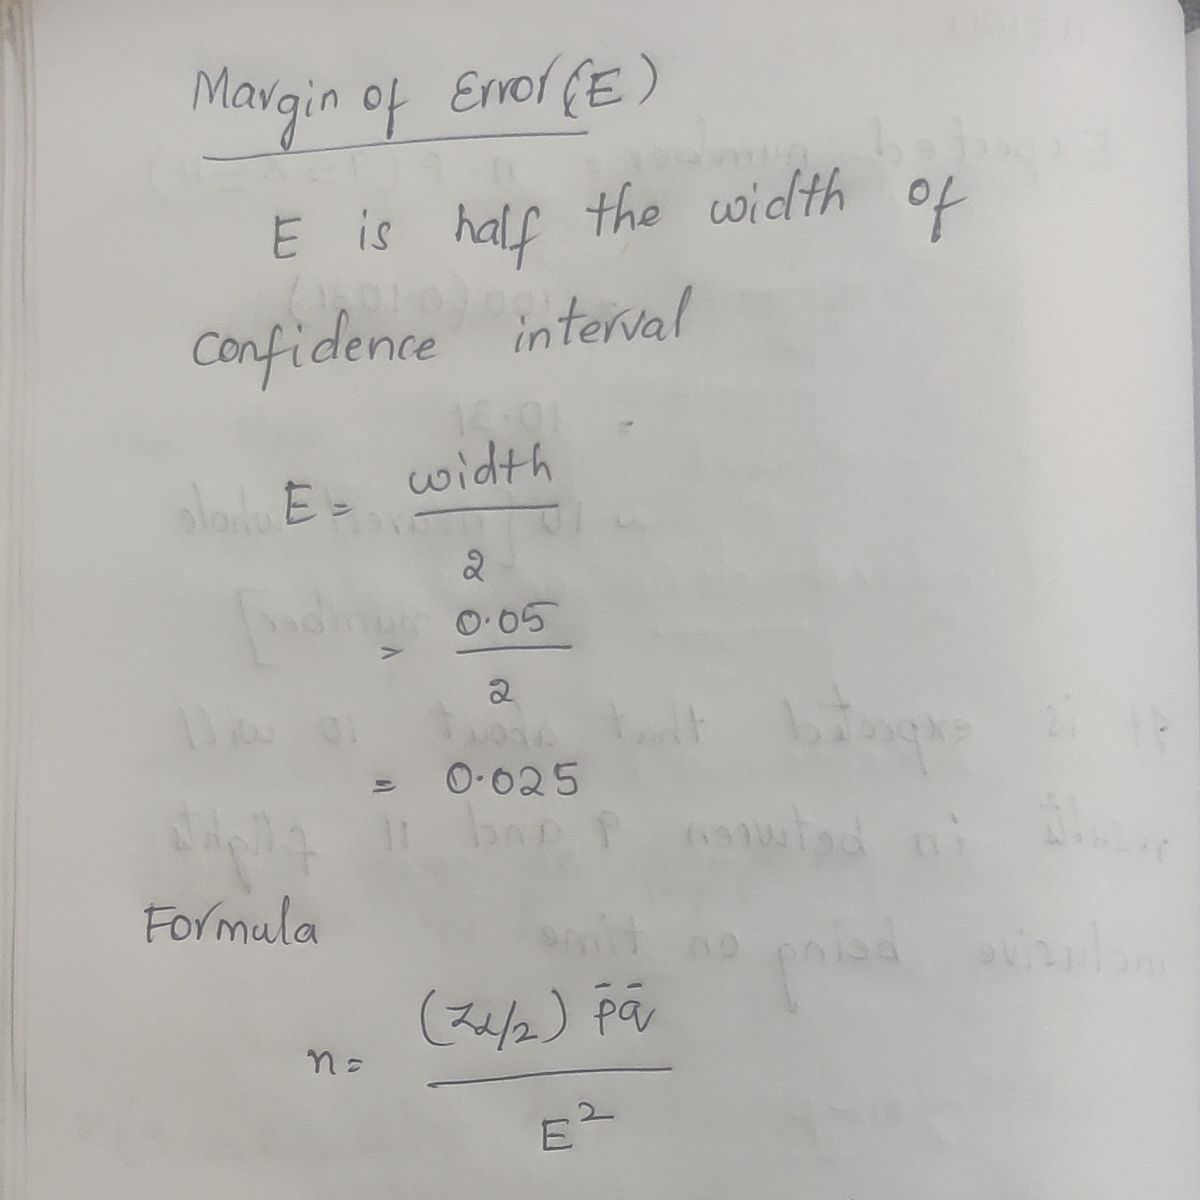 Margin of Error (E)
E is half the width of
confidence interval
E = width / 2
= 0.05 / 2
= 0.025
Formula
n = (Zα/2) p̄q̄ / E²